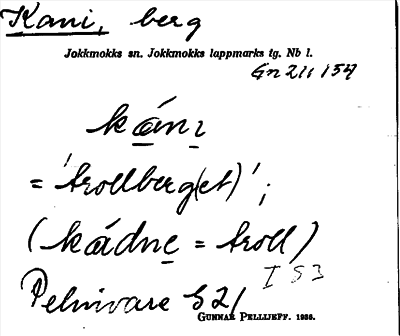 Kani, berg
Jokkmokks sn. Jokkmokks lappmarks tg. Nb l.
Gn 211 154
kánı
= 'trollberg(et)';
(kádne = troll)
I S3
Pelnivare S2/
GUNNAR PELLIJEFF. 1956.